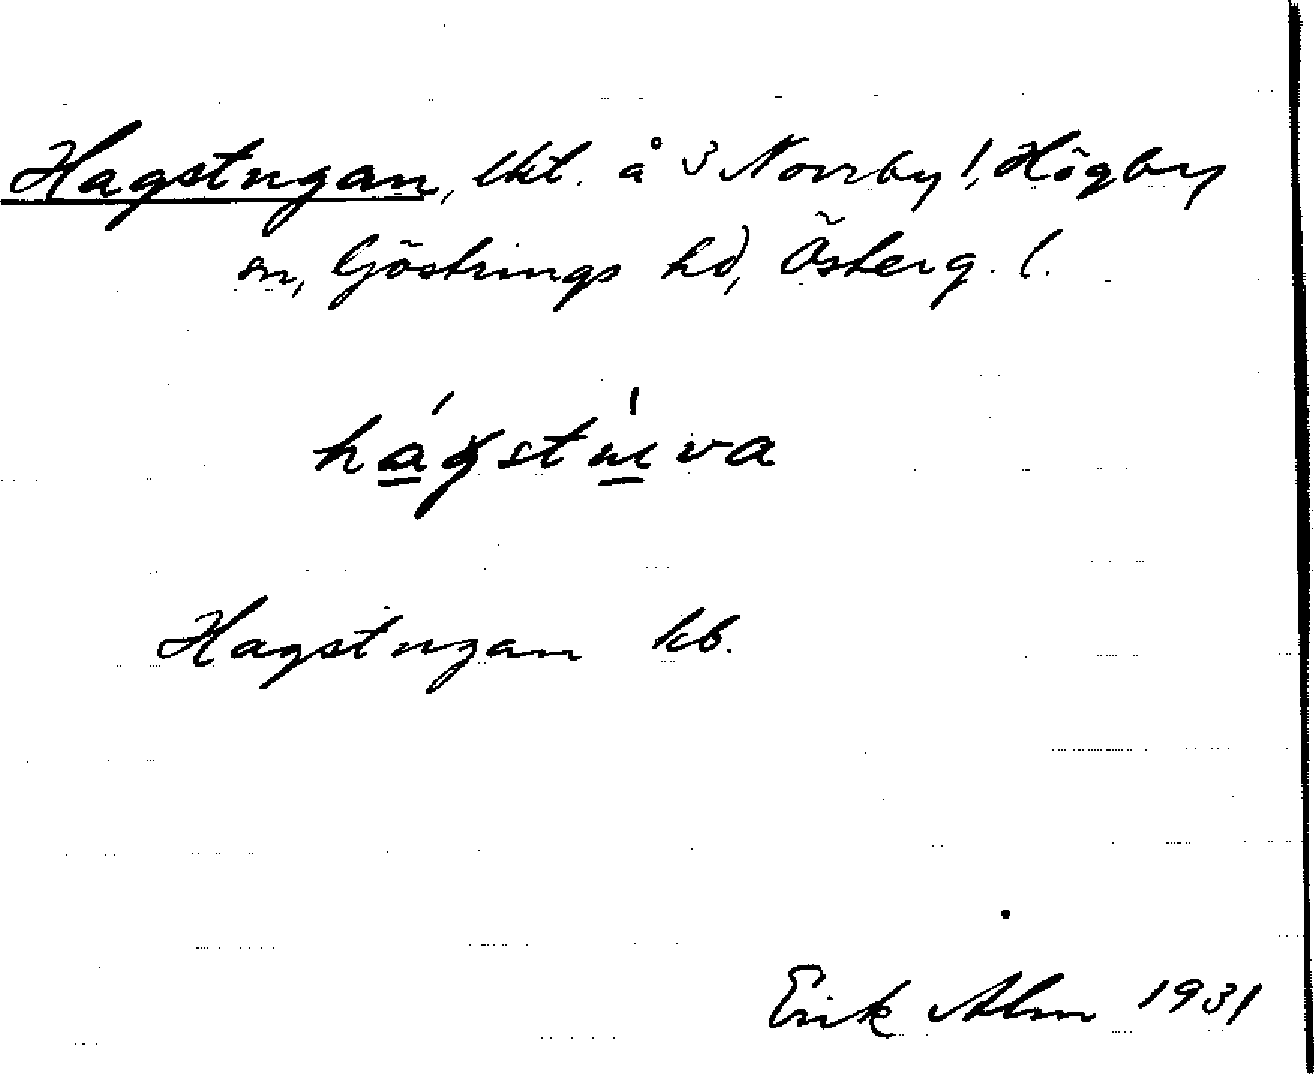 Hagstugan, lht. å 3 Norrby l, Högby
sn, Göstrings hd, Österg. l.
hágstúva
Hagstugan kb.
Erik Alm 1931